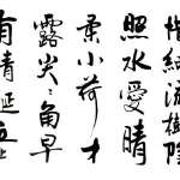 惜細流樹陰
照水愛晴
柔小荷才
露尖々角早
有蜻蜓立